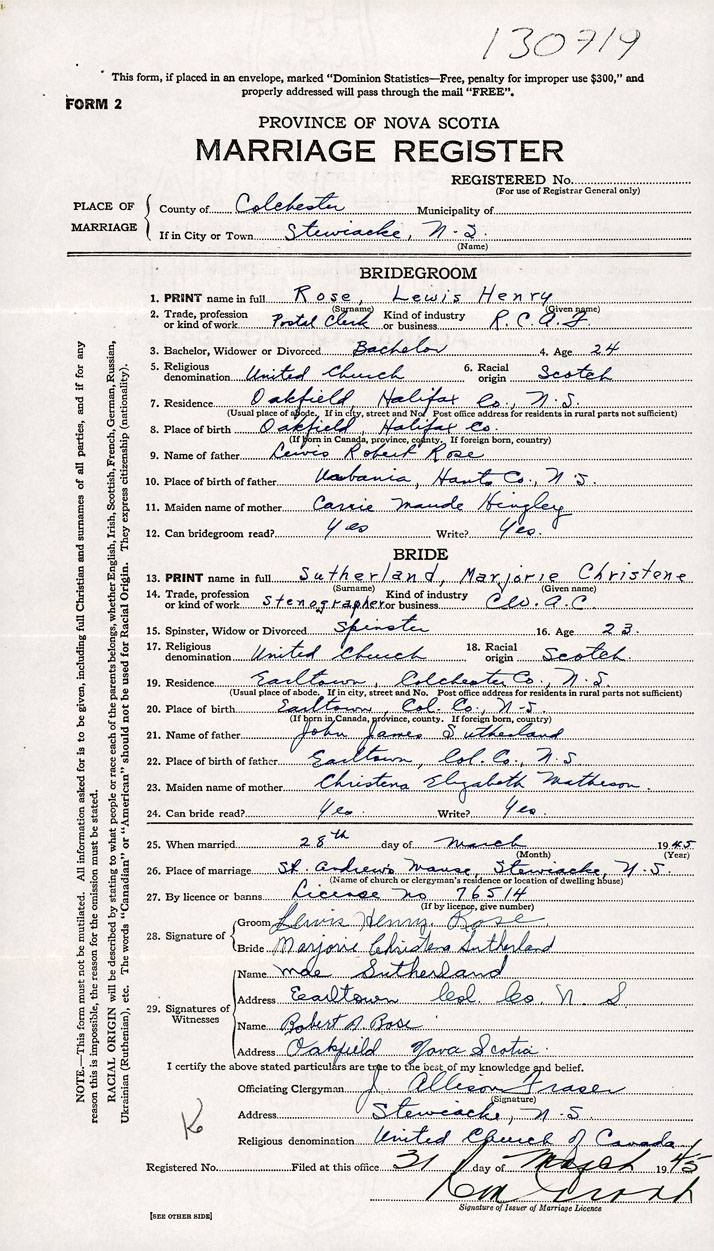 130719
This form, if placed in an envelope, marked "Dominion Statistics—Free, penalty for improper use $300," and
properly addressed will pass through the mail "FREE".
FORM 2
PROVINCE OF NOVA SCOTIA
MARRIAGE REGISTER
REGISTERED No.
(For use of Registrar General only)
PLACE OF MARRIAGE
County of Colchester Municipality of
If in City or Town Stewiacke, N.S.
(Name)
BRIDEGROOM
1. PRINT name in full Rose, Lewis Henry
(Surname) (Given name)
2. Trade, profession or kind of work Postal Clerk Kind of industry or business R.C.A.F.
3. Bachelor, Widower or Divorced Bachelor 4. Age 24
5. Religious denomination United Church 6. Racial origin Scotch
7. Residence Oakfield Halifax Co., N.S.
(Usual place of abode. If in city, street and No. Post office address for residents in rural parts not sufficient)
8. Place of birth Oakfield, Halifax Co.
(If born in Canada, province, county. If foreign born, country)
9. Name of father Lewis Robert Rose
10. Place of birth of father Urbania, Hants Co., N.S.
11. Maiden name of mother Carrie Maude Hingley
12. Can bridegroom read? Yes Write? Yes.
BRIDE
13. PRINT name in full Sutherland, Marjorie Christene
(Surname) (Given name)
14. Trade, profession or kind of work Stenographer Kind of industry or business C.W.A.C.
15. Spinster, Widow or Divorced Spinster 16. Age 23.
17. Religious denomination United Church 18. Racial origin Scotch.
19. Residence Earltown, Colchester Co., N.S.
(Usual place of abode. If in city, street and No. Post office address for residents in rural parts not sufficient)
20. Place of birth Earltown, Col. Co., N.S.
(If born in Canada, province, county. If foreign born, country)
21. Name of father John James Sutherland
22. Place of birth of father Earltown, Col. Co., N.S
23. Maiden name of mother Christena Elizabeth Matheson.
24. Can bride read? Yes. Write? Yes.
25. When married 28th day of March 1945
(Month) (Year)
26. Place of marriage St. Andrew's Manse, Stewiacke, N.S.
(Name of church or clergyman's residence or location of dwelling house)
27. By licence or banns License No 76514
(If by licence, give number)
28. Signature of
Groom Lewis Henry Rose
Bride Marjorie Christena Sutherland
29. Signatures of Witnesses
Name Mae Sutherland
Address Earltown Col. Co. N S
Name Robert A Rose
Address Oakfield Nova Scotia.
I certify the above stated particulars are true to the best of my knowledge and belief.
Officiating Clergyman J. Allison Fraser
(Signature)
Address Stewiacke, N.S.
Religious denomination United Church of Canada
Registered No. Filed at this office 31 day of March 1945
Signature of Issuer of Marriage Licence
[SEE OTHER SIDE]
NOTE.—This form must not be mutilated. All information asked for is to be given, including full Christian and surnames of all parties, and if for any
reason this is impossible, the reason for the omission must be stated.
RACIAL ORIGIN will be described by stating to what people or race each of the parents belongs, whether English, Irish, Scottish, French, German, Russian,
Ukrainian (Ruthenian), etc. The words "Canadian" or "American" should not be used for Racial Origin. They express citizenship (nationality).